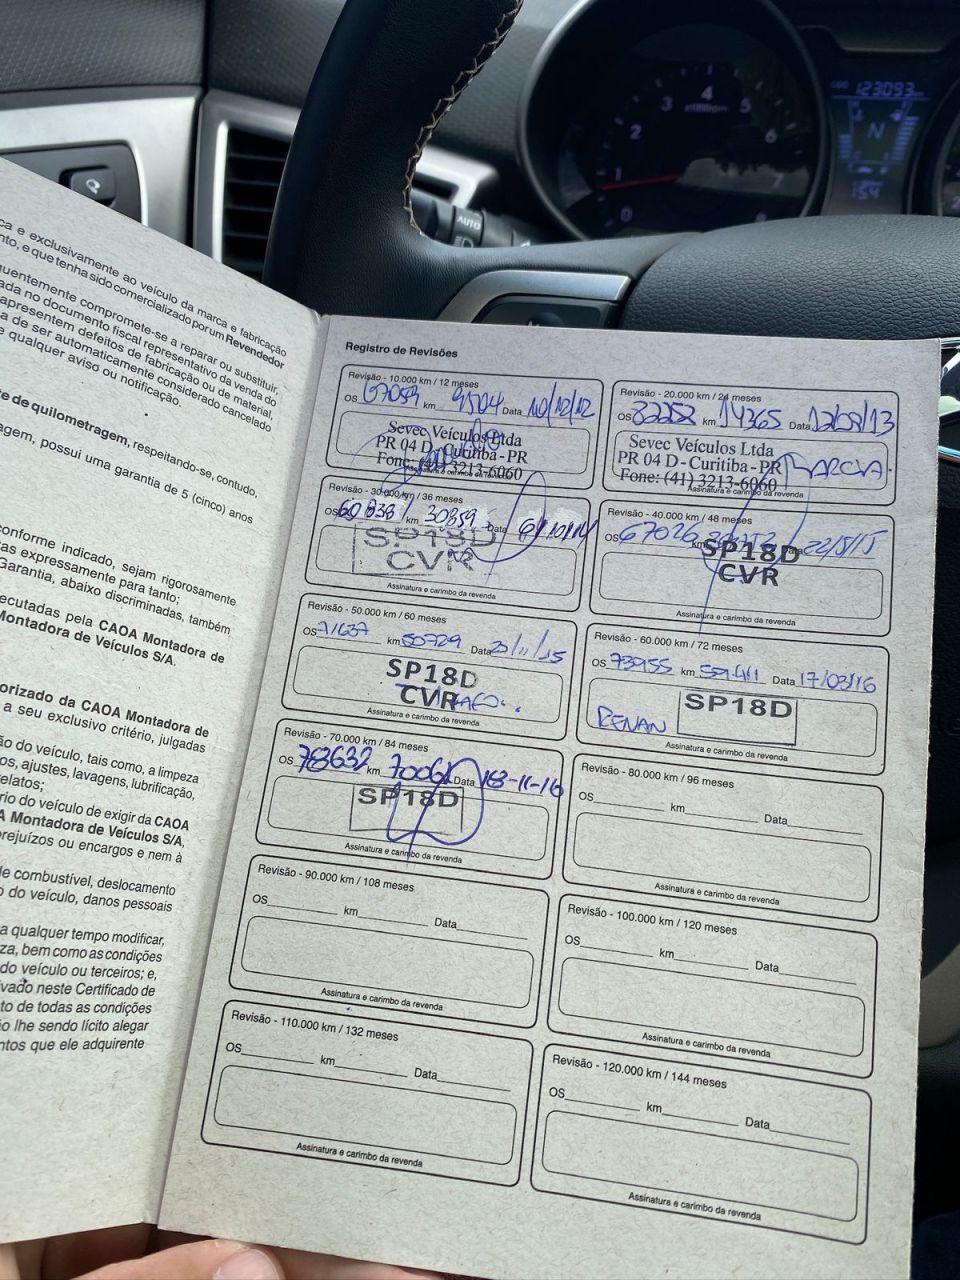 ca e exclusivamente ao veículo da marca e fabricação
nto, e que tenha sido comercializado por um Revendedor
quentemente compromete-se a reparar ou substituir,
ada no documento fiscal representativo da venda do
apresentem defeitos de fabricação ou de material,
a de ser automaticamente considerado cancelado
e qualquer aviso ou notificação.
te de quilometragem, respeitando-se, contudo,
agem, possui uma garantia de 5 (cinco) anos
conforme indicado, sejam rigorosamente
tas expressamente para tanto;
Garantia, abaixo discriminadas, também
ecutadas pela CAOA Montadora de
Montadora de Veículos S/A.
orizado da CAOA Montadora de
a seu exclusivo critério, julgadas
ão do veículo, tais como, a limpeza
os, ajustes, lavagens, lubrificação,
elatos;
rio do veículo de exigir da CAOA
A Montadora de Veículos S/A,
prejuízos ou encargos e nem à
de combustível, deslocamento
o do veículo, danos pessoais
a qualquer tempo modificar,
za, bem como as condições
do veículo ou terceiros; e,
vado neste Certificado de
to de todas as condições
ão lhe sendo lícito alegar
ntos que ele adquirente
AUTO
0 1 2 3 4 5 6 7
ODO 123093
N
154
Registro de Revisões
Revisão - 10.000 km / 12 meses
OS km 9504 Data 10/12/12
Sevec Veículos Ltda
PR 04 D - Curitiba - PR
Fone: (41) 3213-6060
Assinatura e carimbo da revenda
Revisão - 20.000 km / 24 meses
OS 32252 km 14365 Data 12/08/13
Sevec Veículos Ltda
PR 04 D - Curitiba - PR
Fone: (41) 3213-6060
MARCIA
Assinatura e carimbo da revenda
Revisão - 30.000 km / 36 meses
OS 60838 km 30859 Data
SP18D
CVR
Assinatura e carimbo da revenda
Revisão - 40.000 km / 48 meses
OS 67026 km Data 22/5/15
SP18D
CVR
Assinatura e carimbo da revenda
Revisão - 50.000 km / 60 meses
OS 71637 km 50729 Data 23/11/15
SP18D
CVR
Assinatura e carimbo da revenda
Revisão - 60.000 km / 72 meses
OS 73955 km 59.411 Data 17/03/16
SP18D
RENAN
Assinatura e carimbo da revenda
Revisão - 70.000 km / 84 meses
OS 78632 km Data 18-11-16
SP18D
Assinatura e carimbo da revenda
Revisão - 80.000 km / 96 meses
OS km Data
Assinatura e carimbo da revenda
Revisão - 90.000 km / 108 meses
OS km Data
Assinatura e carimbo da revenda
Revisão - 100.000 km / 120 meses
OS km Data
Assinatura e carimbo da revenda
Revisão - 110.000 km / 132 meses
OS km Data
Assinatura e carimbo da revenda
Revisão - 120.000 km / 144 meses
OS km Data
Assinatura e carimbo da revenda